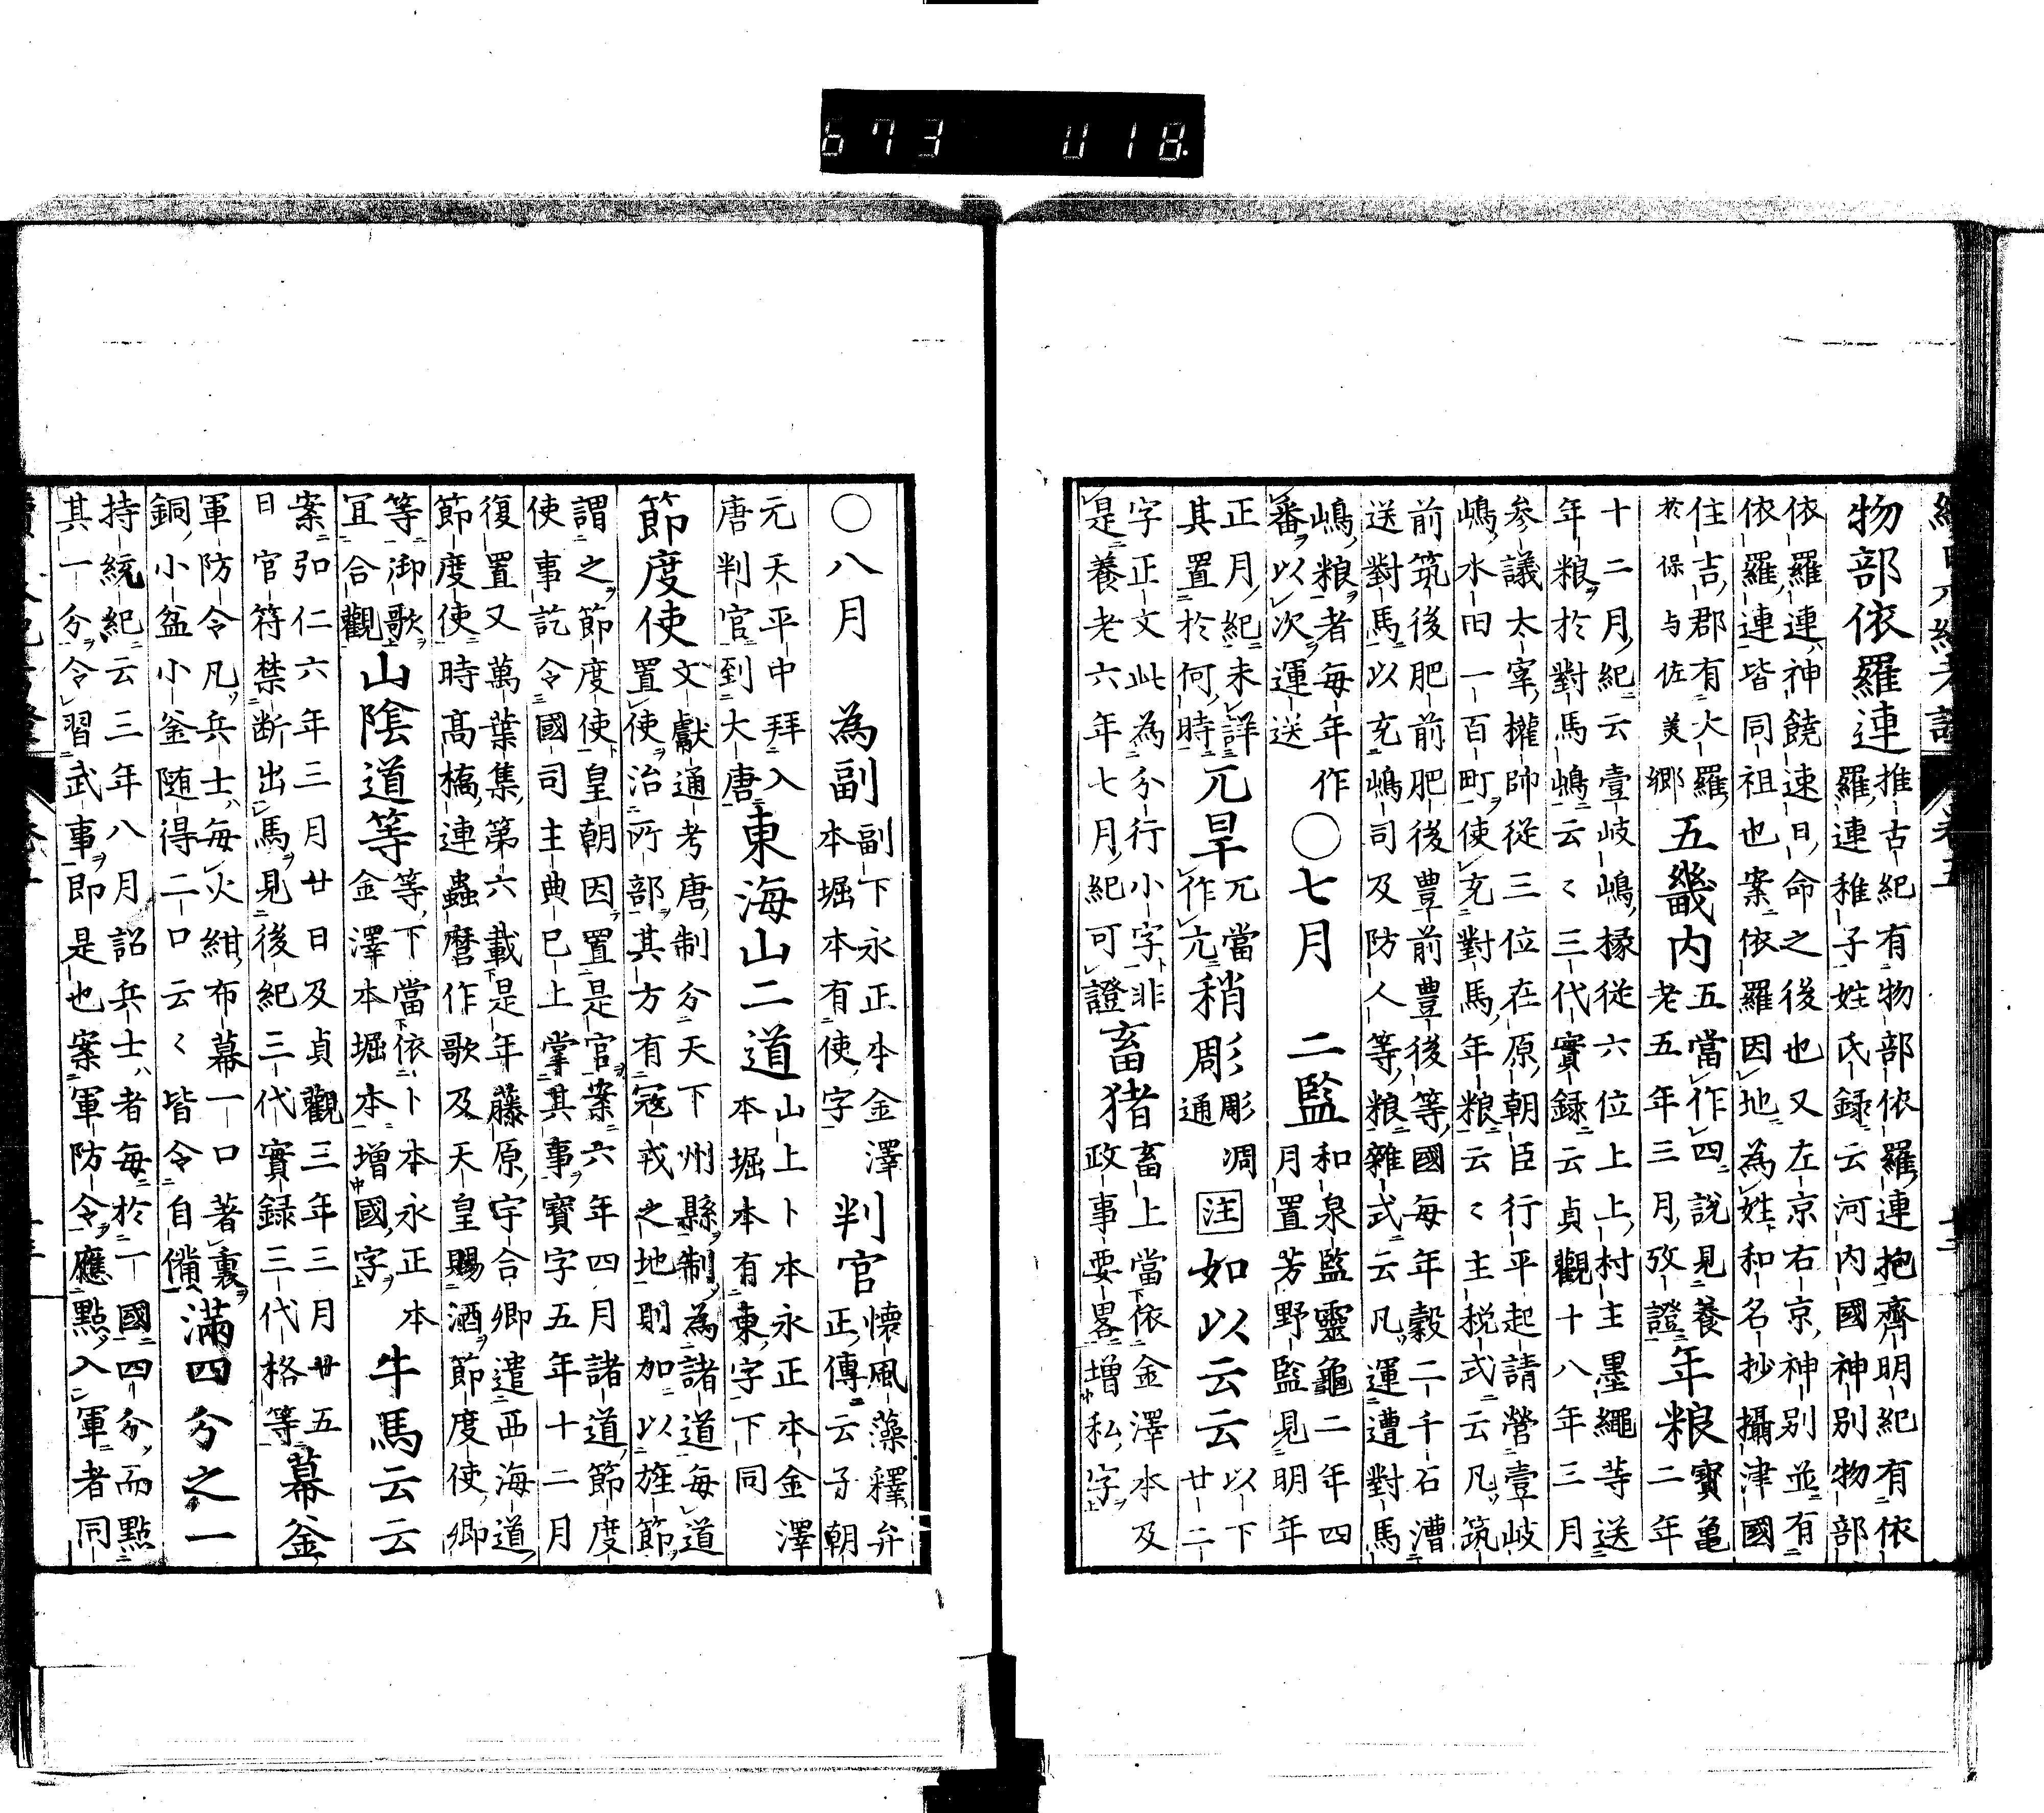 物部依羅連
推古紀有物部依羅連抱齊明紀有依
羅連稚子姓氏録云河内國神別物部
依羅連神饒速日命之後也又左京右京神別並有
依羅連皆同祖也案依羅因地為姓和名抄攝津國
住吉郡有大羅
於保与佐美郷
五畿内
五當作四説見養
老五年三月攷證
年粮
寳亀
二年
十二月紀云壹岐嶋掾従六位上上村主墨繩等送
年粮於對馬嶋云々三代實録云貞觀十八年三月
参議太宰權帥従三位在原朝臣行平起請營壹岐
嶋水田一百町使充對馬年粮云々主税式云凡筑
前筑後肥前肥後豊前豊後等國每年穀二千石漕
送對馬以充嶋司及防人等粮雜式云凡運遭對馬
嶋粮者每年作
番以次運送
○七月 二監
和泉監靈龜二年四
月置芳野監見明年
正月紀未詳
其置於何時
兀旱
兀當
作亢
稍彫
彫凋
通
注 如以云云
以下
廿二
字正文此為分行小字非
是養老六年七月紀可證
畜猪
畜上當依金澤本及
政事要畧増私字
○八月 為副
副下永正本金澤
本堀本有使字
判官
懐風藻釋弁
正傳云子朝
元天平中拜入
唐判官到大唐
東海山二道
山上卜本永正本金澤
本堀本有東字下同
節度使
文獻通考唐制分天下州縣制為諸道每道
置使治所部其方有冦戎之地則加以旌節
謂之節度使皇朝因置是官案六年四月諸道節度
使事訖令國司主典已上掌其事寳字五年十二月
復置又萬葉集第六載是年藤原宇合卿遣西海道
節度使時髙橋連蟲麿作歌及天皇賜酒節度使卿
等御歌
冝合觀
山隂道等
等下當依卜本永正本
金澤本堀本増國字
牛馬云云
案弘仁六年三月廿日及貞觀三年三月廿五
日官符禁断出馬見後紀三代實録三代格等
幕釜
軍防令凡兵士每火紺布幕一口著裏
銅小盆小釜随得二口云々皆令自備
滿四分之一
持統紀云三年八月詔兵士者每於一國四分而點
其一分令習武事即是也案軍防令應點入軍者同